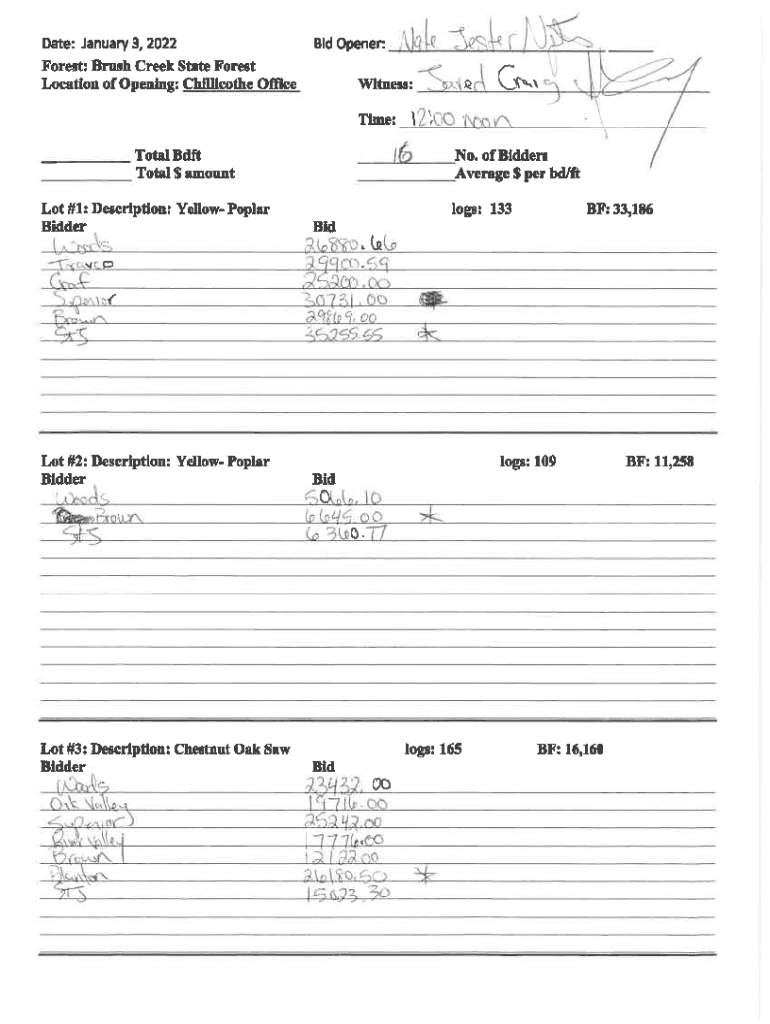 Date: January 3, 2022 Bid Opener: Nate Jester
Forest: Brush Creek State Forest
Location of Opening: Chillicothe Office Witness: Jared Craig
Time: 12:00 noon
Total Bdft 16 No. of Bidders
Total $ amount Average $ per bd/ft
Lot #1: Description: Yellow- Poplar logs: 133 BF: 33,186
Bidder Bid
Woods 26880.66
Travco 29900.59
Graf 25200.00
Superior 30731.00
Brown 29869.00
STJ 35255.55 *
Lot #2: Description: Yellow- Poplar logs: 109 BF: 11,258
Bidder Bid
Woods 5066.10
Brown 6645.00 *
STJ 6360.77
Lot #3: Description: Chestnut Oak Saw logs: 165 BF: 16,160
Bidder Bid
Woods 23432.00
Oak Valley 19716.00
Superior 25242.00
River Valley 17776.00
Brown 12122.00
Blanton 26180.50 *
STJ 15023.30